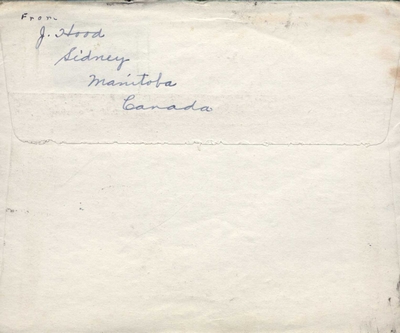 From
J. Hood
Sidney
Manitoba
Canada